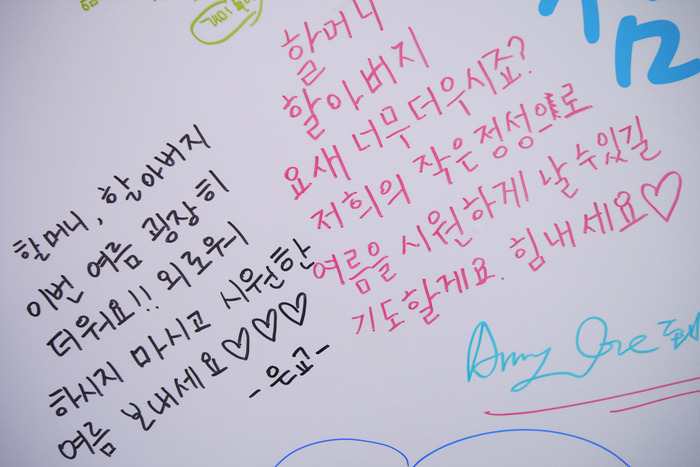 할머니, 할아버지
이번 여름 굉장히
더워요!! 외로워
하시지 마시고 시원한
여름 보내세요♡♡♡
-은교-
할머니
할아버지
요새 너무더우시죠?
저희의 작은정성으로
여름을 시원하게 날수있길
기도할게요. 힘내세요♡